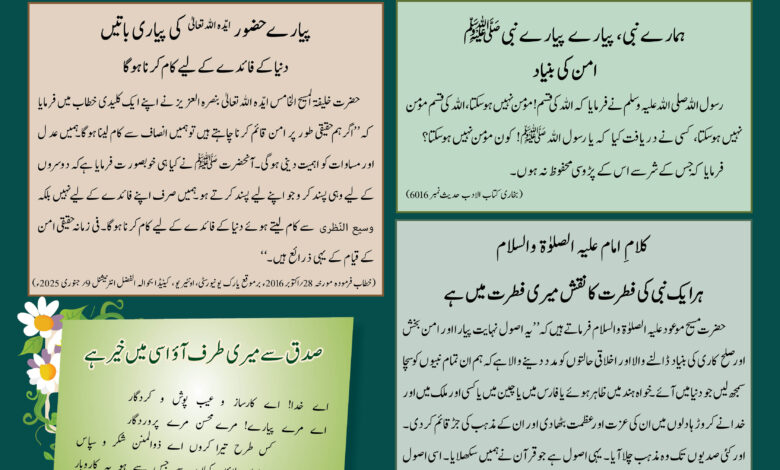 ہمارے نبی، پیارے پیارے نبی ﷺ
امن کی بنیاد
رسول اللہ صلی اللہ علیہ وسلم نے فرمایا کہ اللہ کی قسم! مومن نہیں ہوسکتا، اللہ کی قسم مومن
نہیں ہوسکتا، کسی نے دریافت کیا کہ یا رسول اللہ ﷺ! کون مومن نہیں ہوسکتا؟
فرمایا کہ جس کے شر سے اس کے پڑوسی محفوظ نہ ہوں۔
(بخاری کتاب الادب حدیث نمبر 6016)
پیارے حضور ایّدہ اللہ تعالیٰ کی پیاری باتیں
دنیا کے فائدے کے لیے کام کرنا ہوگا
حضرت خلیفۃ المسیح الخامس ایّدہ اللہ تعالیٰ بنصرہ العزیز نے اپنے ایک کلیدی خطاب میں فرمایا
کہ ’’اگر ہم حقیقی طور پر امن قائم کرنا چاہتے ہیں تو ہمیں انصاف سے کام لینا ہوگا۔ ہمیں عدل
اور مساوات کو اہمیت دینی ہوگی۔ آنحضرت ﷺ نے کیا ہی خوبصورت فرمایا ہے کہ دوسروں
کے لیے وہی پسند کرو جو اپنے لیے پسند کرتے ہو۔ ہمیں صرف اپنے فائدے کے لیے نہیں بلکہ
وسیع النّظری سے کام لیتے ہوئے دنیا کے فائدے کے لیے کام کرنا ہوگا۔ فی زمانہ حقیقی امن
کے قیام کے یہی ذرائع ہیں۔‘‘
(خطاب فرمودہ مورخہ 28؍اکتوبر 2016ء بر موقع یارک یونیورسٹی، اونٹیریو، کینیڈا بحوالہ الفضل انٹرنیشنل 9؍جنوری 2025ء)
کلامِ امام علیہ الصلوٰۃ والسلام
ہر ایک نبی کی فطرت کا نقش میری فطرت میں ہے
حضرت مسیح موعود علیہ الصلوٰۃ والسلام فرماتے ہیں کہ ’’یہ اصول نہایت پیارا اور امن بخش
اور صلح کاری کی بنیاد ڈالنے والا اور اخلاقی حالتوں کو مدد دینے والا ہے کہ ہم ان تمام نبیوں کو سچا
سمجھ لیں جو دنیا میں آئے۔ خواہ ہند میں ظاہر ہوئے یا فارس میں یا چین میں یا کسی اور ملک میں اور
خدا نے کروڑہا دلوں میں ان کی عزت اور عظمت بٹھا دی اور ان کے مذہب کی جڑ قائم کر دی۔
اور کئی صدیوں تک وہ مذہب چلا آیا۔ یہی اصول ہے جو قرآن نے ہمیں سکھلایا۔ اسی اصول
صدق سے میری طرف آؤ اسی میں خیر ہے
اے خدا! اے کارساز و عیب پوش و کردگار
اے مرے پیارے! مرے محسن مرے پروردگار
کس طرح تیرا کروں اے ذوالمنن شکر و سپاس